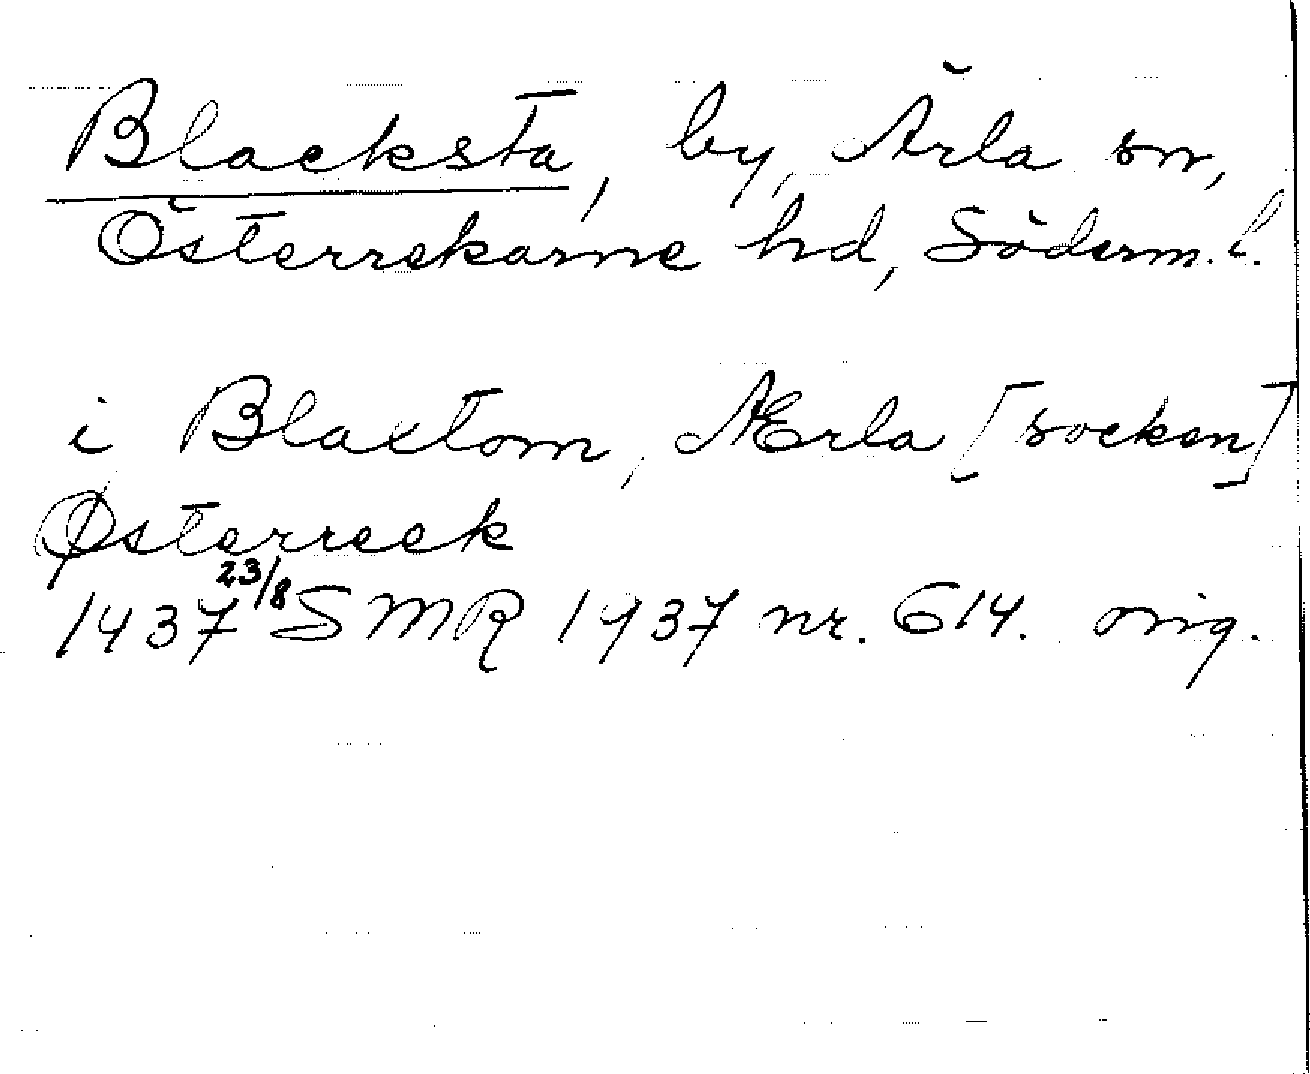 Blacksta, by, Ärla sn,
Österrekarne hd, Söderm. l.
i Blaxtom, Ærla [socken]
Østerreek
1437 23/8 SMR 1937 nr. 614. orig.